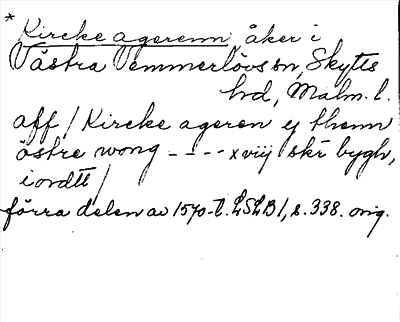 * Kircke agerenn åker i
Västra Vemmerlövs sn, Skytts
hd, Malm. l.
aff / Kircke ageren ej thenn
östre wong ---- xviij skr bygh,
iordtt /
förra delen av 1570-t. LSLB 1, s. 338. orig.